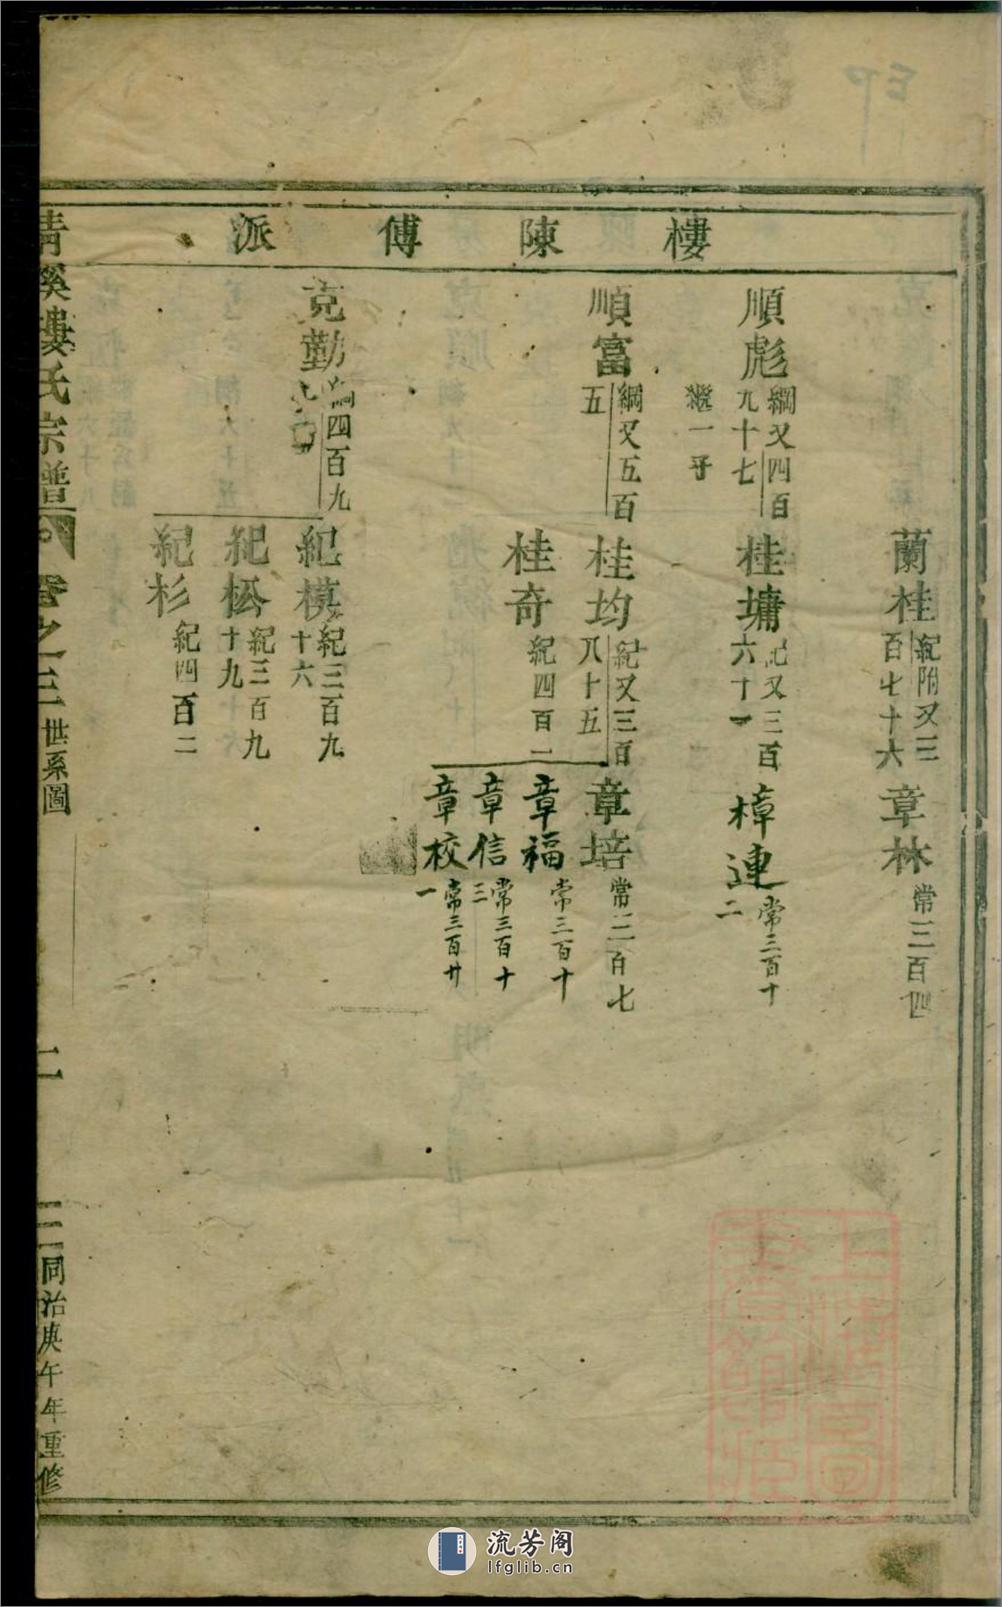 樓陳傅派
蘭桂 紀附又三百七十六
章林 常三百四
順彪 綱又四百九十七
繼一子
桂墉 紀又三百六十一
樟連 常三百十二
順富 綱又五百五
桂均 紀又三百八十五
章培 常三百七
章福 常三百十
章信 常三百十三
章校 常三百廿一
桂奇 紀四百一
克勤 綱四百九
紀模 紀三百九十六
紀松 紀三百九十九
紀杉 紀四百二
清溪樓氏宗譜 卷之三 世系圖 二 三 同治庚午年重修
上海圖書館藏
流芳阁
lfglib.cn